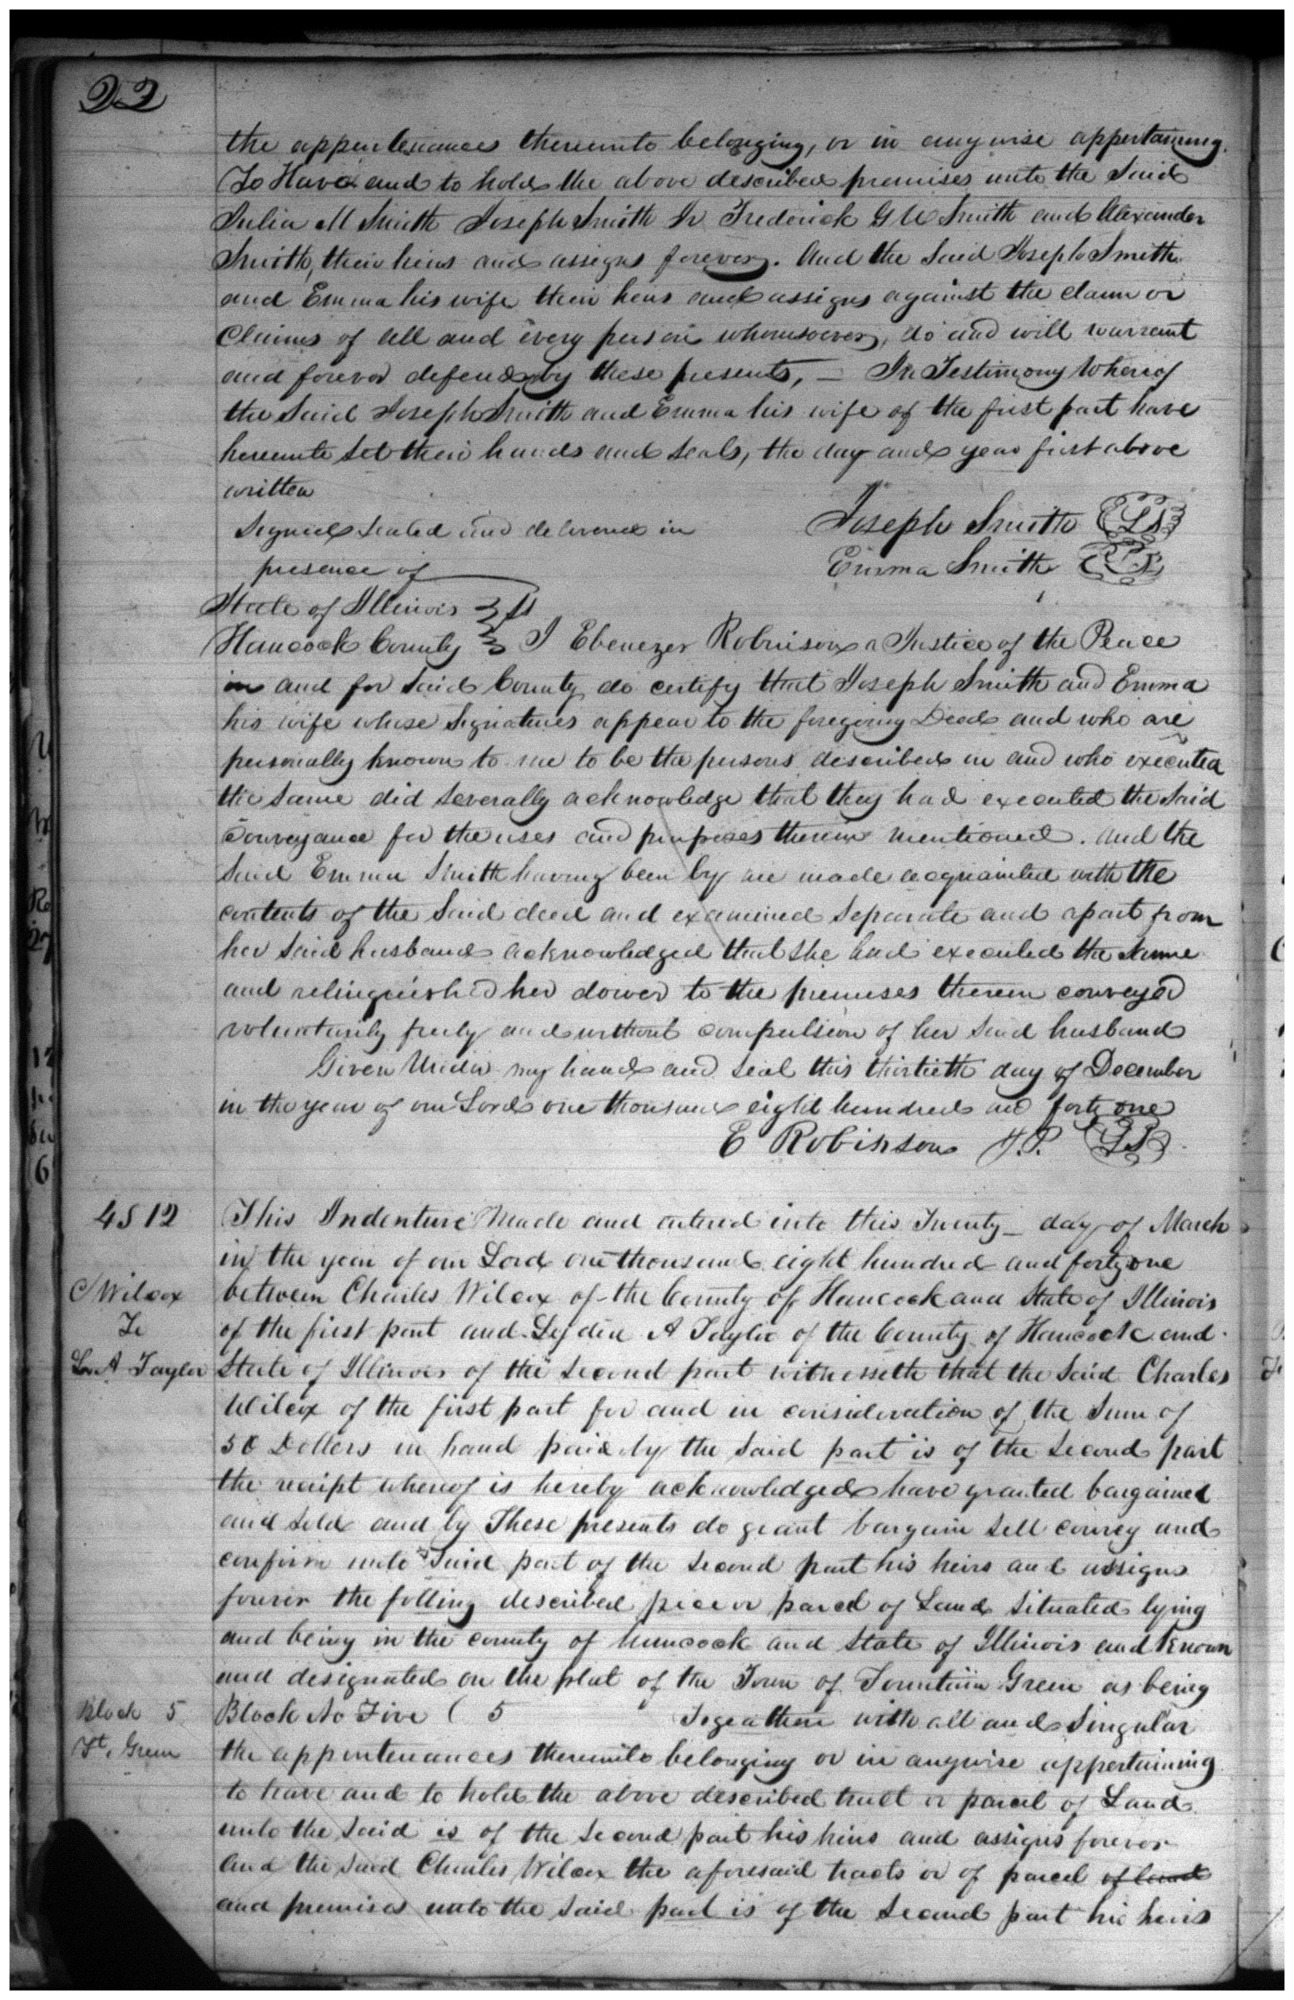 22
the appertenances thereunto belonging, or in anywise appertaining.
To Have and to hold the above described premises unto the Said
Julia M Smith Joseph Smith Jr Frederick G W Smith and Alexander
Smith, their heirs and assigns forever. And the Said Joseph Smith
and Emma his wife their heirs and assigns against the claim or
Claims of all and every person whomsoever, do and will warrant
and forever defend by these presents, — In Testimony Whereof
the Said Joseph Smith and Emma his wife of the first part have
hereunto Set their hands and Seals, the day and year first above
written
Signed Sealed and delivered in
presence of
Joseph Smith LS
Emma Smith LS
State of Illinois } SS
Hancock County } I Ebenezer Robinson a Justice of the Peace
in and for Said County do certify that Joseph Smith and Emma
his wife whose Signatures appear to the foregoing Deed and who are
personally known to me to be the persons described in and who executed
the Same did Severally acknowledge that they had executed the Said
Conveyance for the uses and purposes therein mentioned. and the
Said Emma Smith having been by me made acquainted with the
contents of the Said deed and examined Separate and apart from
her Said husband acknowledged that She had executed the Same
and relinquished her dower to the premises therein conveyed
voluntarily freely and without compulsion of her Said husband
Given Under my hand and Seal this thirtieth day of December
in the year of our Lord one thousand eight hundred and forty one
E Robinson J.P. LS
4512
This Indenture Made and entered into this Twenty — day of March
in the year of our Lord one thousand eight hundred and forty one
C Wilcox
To
L A Taylor
between Charles Wilcox of the County of Hancock and State of Illinois
of the first part and Lydia A Taylor of the County of Hancock and
State of Illinois of the Second part witnesseth that the Said Charles
Wilcox of the first part for and in consideration of the Sum of
50 Dollers in hand paid by the Said part is of the Second part
the receipt whereof is hereby acknowledged have granted bargained
and Sold and by These presents do grant bargain Sell convey and
confirm unto Said part of the Second part his heirs and assigns
forever the folling described piece or parcel of Land Situated lying
and being in the county of hancock and State of Illinois and known
and designated on the plat of the Town of Fountain Green as being
Block 5
Ft. Green
Block No Five ( 5 Togeather with all and Singular
the appertenances thereunto belonging or in anywise appertaining
to have and to hold the above described tract or parcel of Land
unto the Said is of the Second part his heirs and assigns forever
And the Said Charles Wilcox the aforesaid tracts or of parcel of land
and premises unto the Said part is of the Second part his heirs